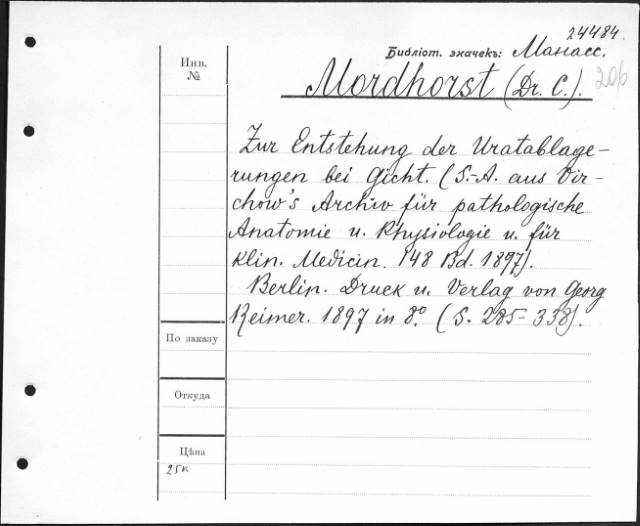 24484.
Библіот. значекъ: Манасс.
Инв.
№
Mordhorst (Dr. C.). 206
Zur Entstehung der Uratablage-
rungen bei Gicht. (S.-A. aus Vir-
chow's Archiv für pathologische
Anatomie u. Physiologie u. für
klin. Medicin. 148 Bd. 1897).
Berlin. Druck u. Verlag von Georg
Reimer. 1897 in 8°. (S. 285-338).
По заказу
Откуда
Цѣна
25к